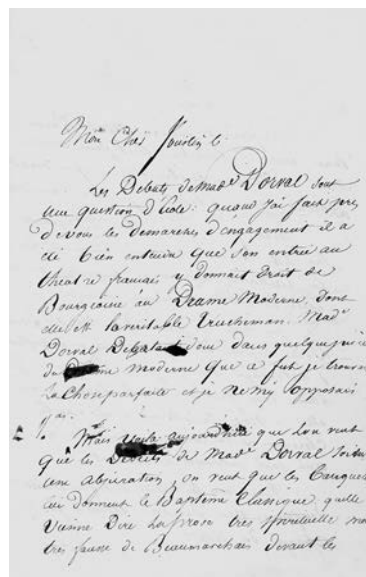 Mon Cher Jouslin b.
Les Debuts de Mad.e Dorval sont
une question d'Ecole: quand j'ai fait pres
de vous les demarches d'engagement il a
été bien entendu que son entrée au
theatre français y donnait droit de
Bourgeoisie au Drame Moderne, dont
elle est la véritable Trucheman. Mad.e
Dorval Debutant donc dans quelque pièce
du moderne que ce fut je trouvais
la chose parfaite et je ne m'y opposais
pas.
Mais voila aujourd'hui que l'on veut
que les Debuts de Mad.e Dorval soient
une abjuration, on veut que les
lui donnent le Baptême Classique, quelle
vienne Dire la prose tres spirituelle mais
tres fausse de Beaumarchais devant les